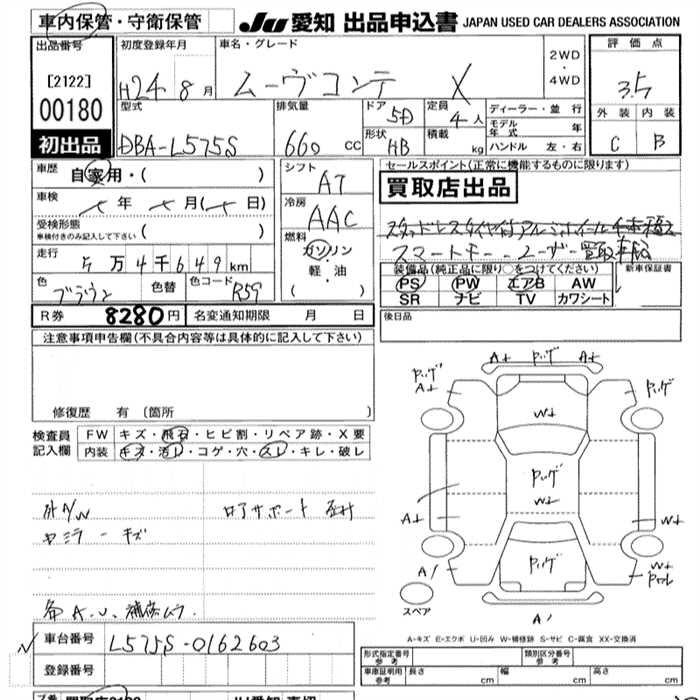 車内保管・守衛保管
Ju 愛知 出品申込書 JAPAN USED CAR DEALERS ASSOCIATION
出品番号
[2122]
00180
初出品
初度登録年月
H24年8月
車名・グレード
ムーヴコンテ X
2WD
・
4WD
評価点
3.5
外装 内装
C B
型式
DBA-L575S
排気量
660 CC
ドア
5D
形状
HB
定員
4人
積載
kg
ディーラー・並行
モデル年式 年
ハンドル 左・右
車歴
自家用・( )
車検
年 月( 日)
受検形態
車検付きのみ記入して下さい ( )
走行
5万4千649km
色
ブラウン
色替
色コード
R59
シフト
AT
冷房
AAC
燃料
ガソリン
軽・油
( )
セールスポイント(正常に機能するものに限ります)
買取店出品
スタッドレスタイヤ付アルミホイール1本積
スマートキー
ユーザー買取車
装備品(純正品に限り○をつけてください)
PS PW エアB AW
SR ナビ TV カワシート
新車保証書
R券 8280円
名変通知期限 月 日
後日品
注意事項申告欄(不具合内容等は具体的に記入して下さい)
修復歴 有(箇所 )
検査員記入欄
FW キズ・飛石・ヒビ割・リペア跡・X要
内装 キズ・汚レ・コゲ・穴・スレ・キレ・破レ
外A/W
ロアサポート
ミラーキズ
各A.U.補修ムラ.
A+ P.ハゲ A+
P.ハゲ
A+
P.ハゲ
W+
P.ハゲ
W+
A+
W+
P.ハゲ
A/
W+
A/
スペア
A-キズ E-エクボ U-凹み W-補修跡 S-サビ C-腐食 XX-交換済
車台番号
L575S-0162603
登録番号
形式指定番号
参考
類別区分番号
参考
車庫証明用
参考
長さ cm 幅 cm 高さ cm